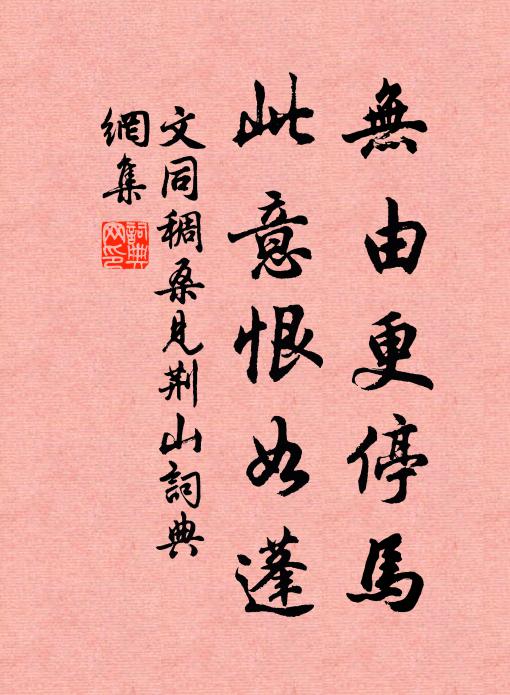 無由更停馬
此意恨如蓬
文同稠桑見荆山詞典
網集
詞典
网印